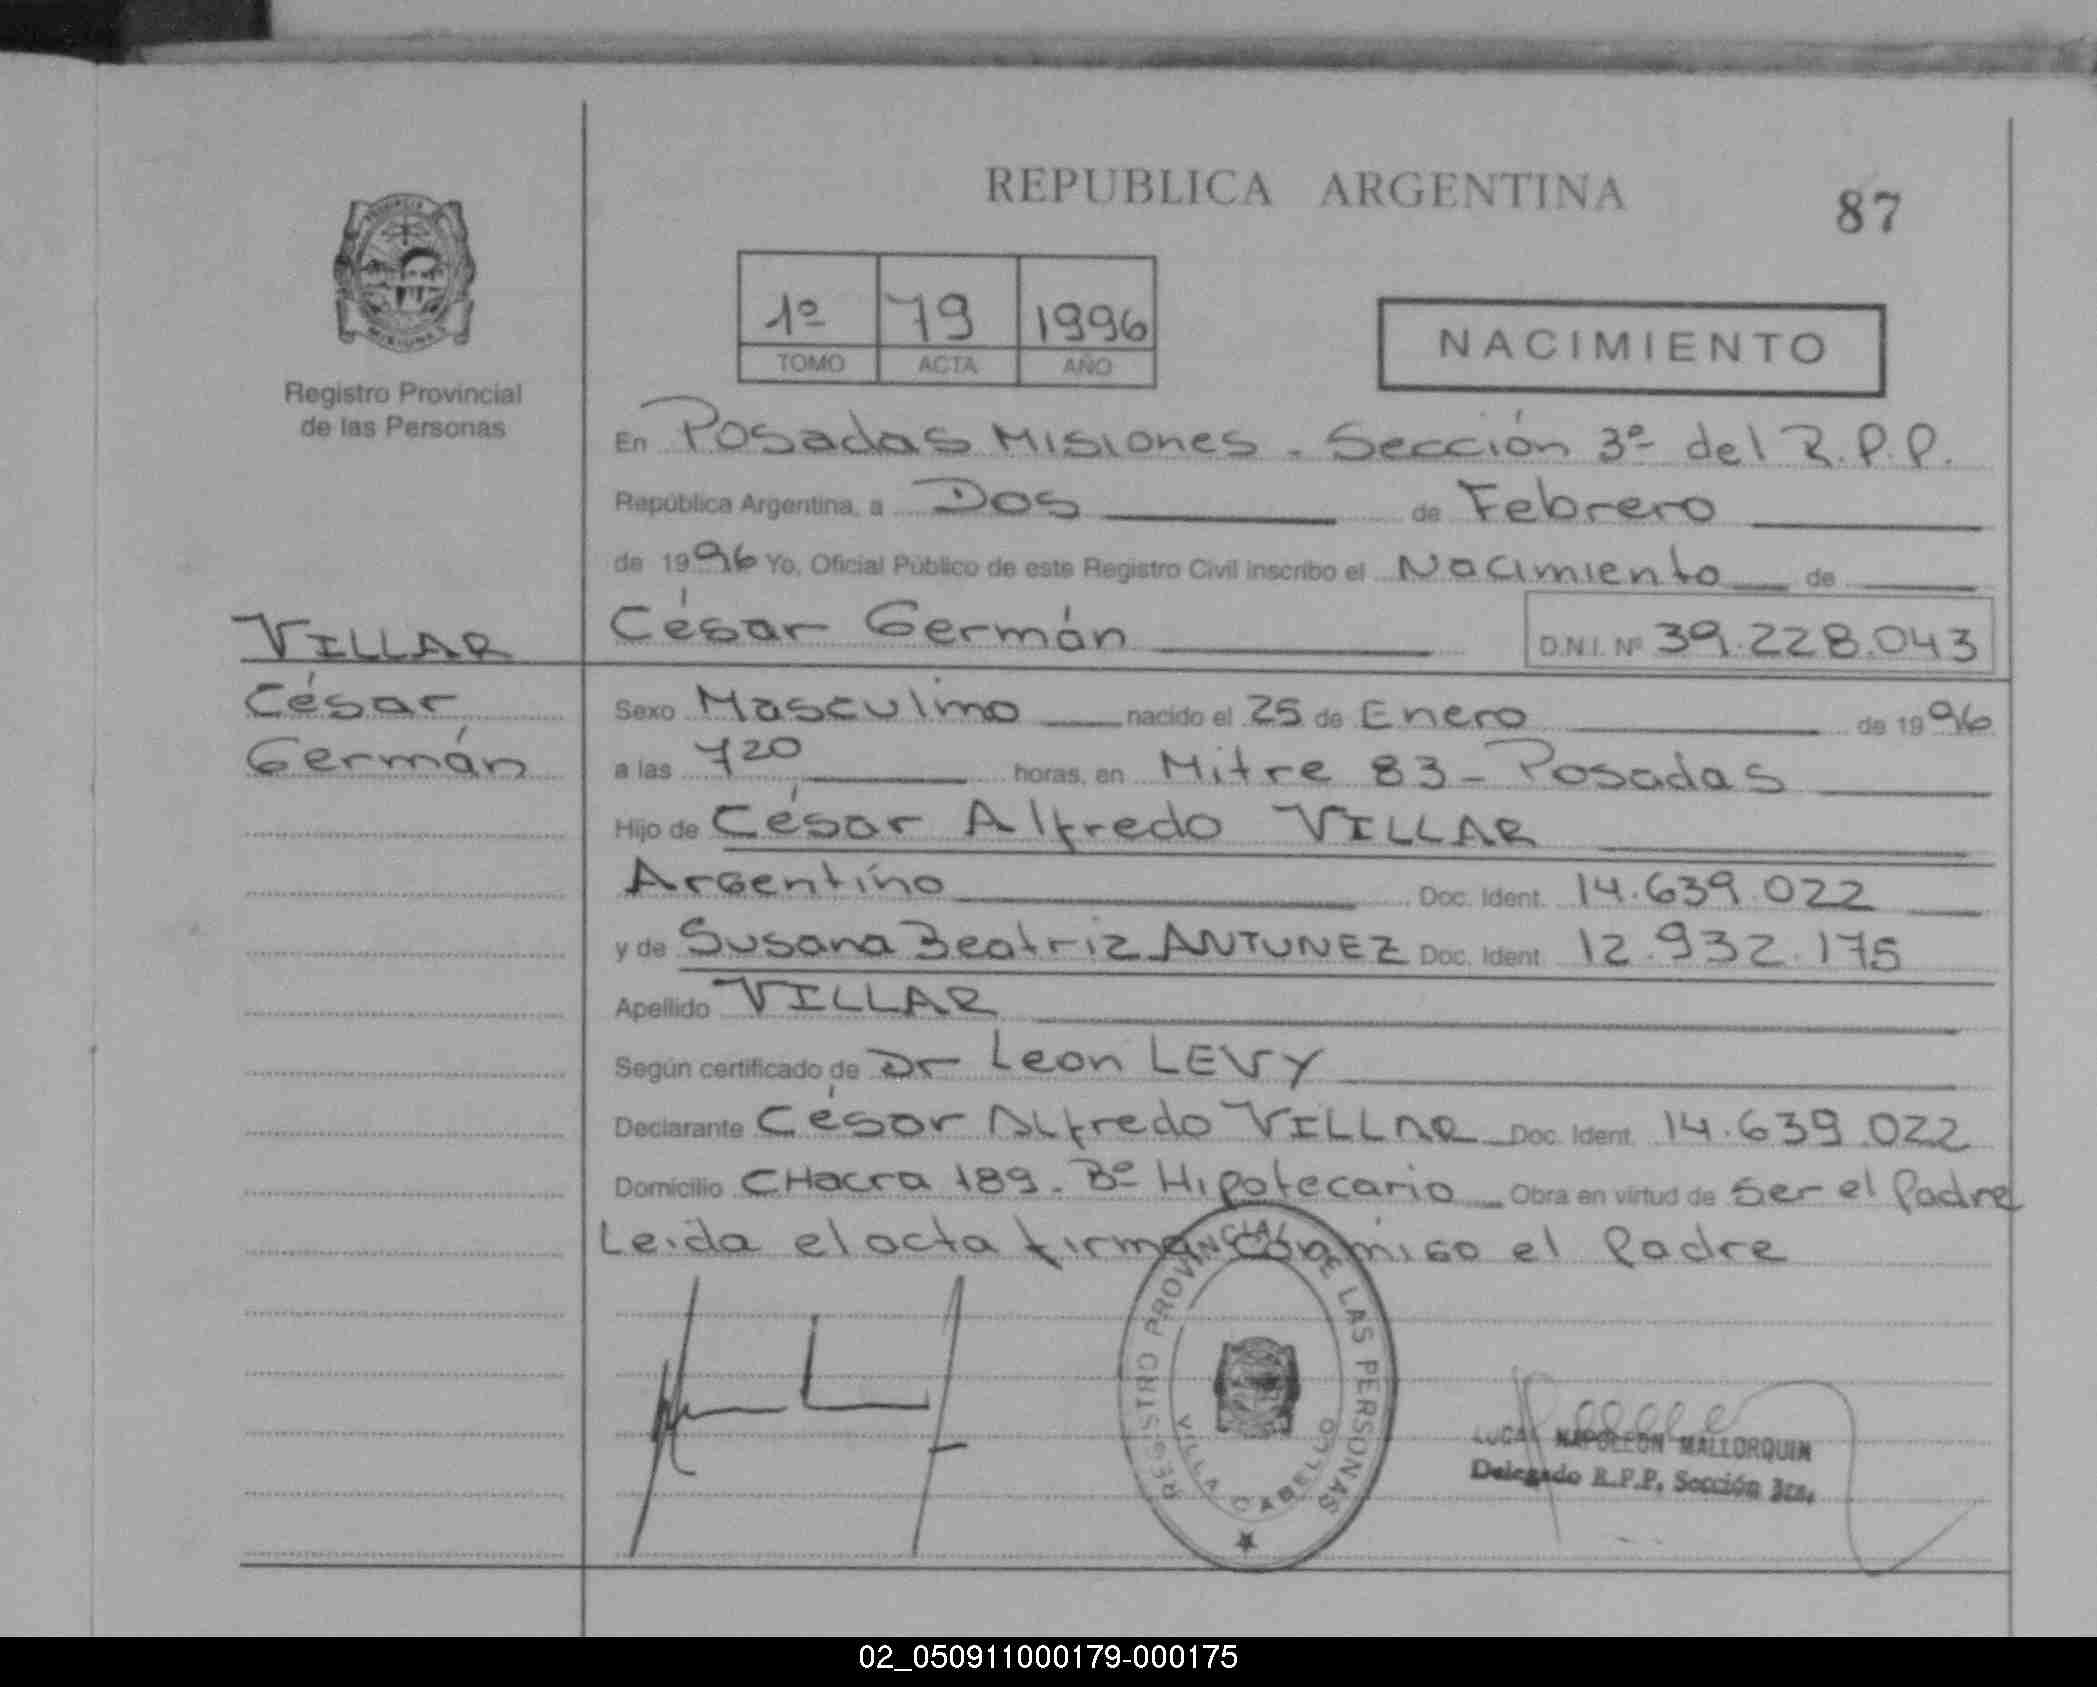 REPUBLICA ARGENTINA
87
1º 79 1996
TOMO ACTA AÑO
NACIMIENTO
Registro Provincial
de las Personas
En Posadas Misiones. Sección 3º del R.P.P.
República Argentina, a Dos de Febrero
de 1996 Yo, Oficial Público de este Registro Civil inscribo el Nacimiento de
VILLAR
César
Germán
César Germán D.N.I. Nº 39.228.043
Sexo Masculino nacido el 25 de Enero de 1996
a las 720 horas, en Mitre 83 - Posadas
Hijo de César Alfredo VILLAR
Argentino Doc. Ident. 14.639.022
y de Susana Beatriz ANTUNEZ Doc. Ident. 12.932.175
Apellido VILLAR
Según certificado de Dr Leon LEVY
Declarante César Alfredo VILLAR Doc. Ident. 14.639.022
Domicilio CHacra 189. Bº Hipotecario Obra en virtud de ser el Padre
Leida el acta firma conmigo el Padre
REGISTRO PROVINCIAL DE LAS PERSONAS
VILLA CABELLO
LUCAS NAPOLEON MALLORQUIN
Delegado R.P.P. Sección 3ra.
02_050911000179-000175